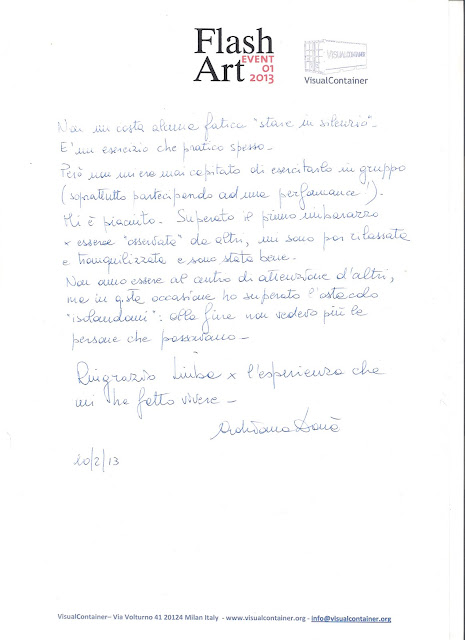 Flash
Art
EVENT
01
2013
VISUALCONTAINER
VisualContainer
Non mi costa alcuna fatica "stare in silenzio"-
E' un esercizio che pratico spesso-
Però non mi era mai capitato di esercitarlo in gruppo
(soprattutto partecipando ad una perfomance!).
Mi è piaciuto. Superato il primo imbarazzo
x essere "osservata" da altri, mi sono poi rilassata
e tranquillizzata e sono stata bene.
Non amo essere al centro di attenzione d'altri,
ma in qsta occasione ho superato l'ostacolo
"isolandomi": alla fine non vedevo più le
persone che passavano-
Ringrazio x l'esperienza che
mi ha fatto vivere-
Adriana
10/2/13
VisualContainer– Via Volturno 41 20124 Milan Italy - www.visualcontainer.org - info@visualcontainer.org